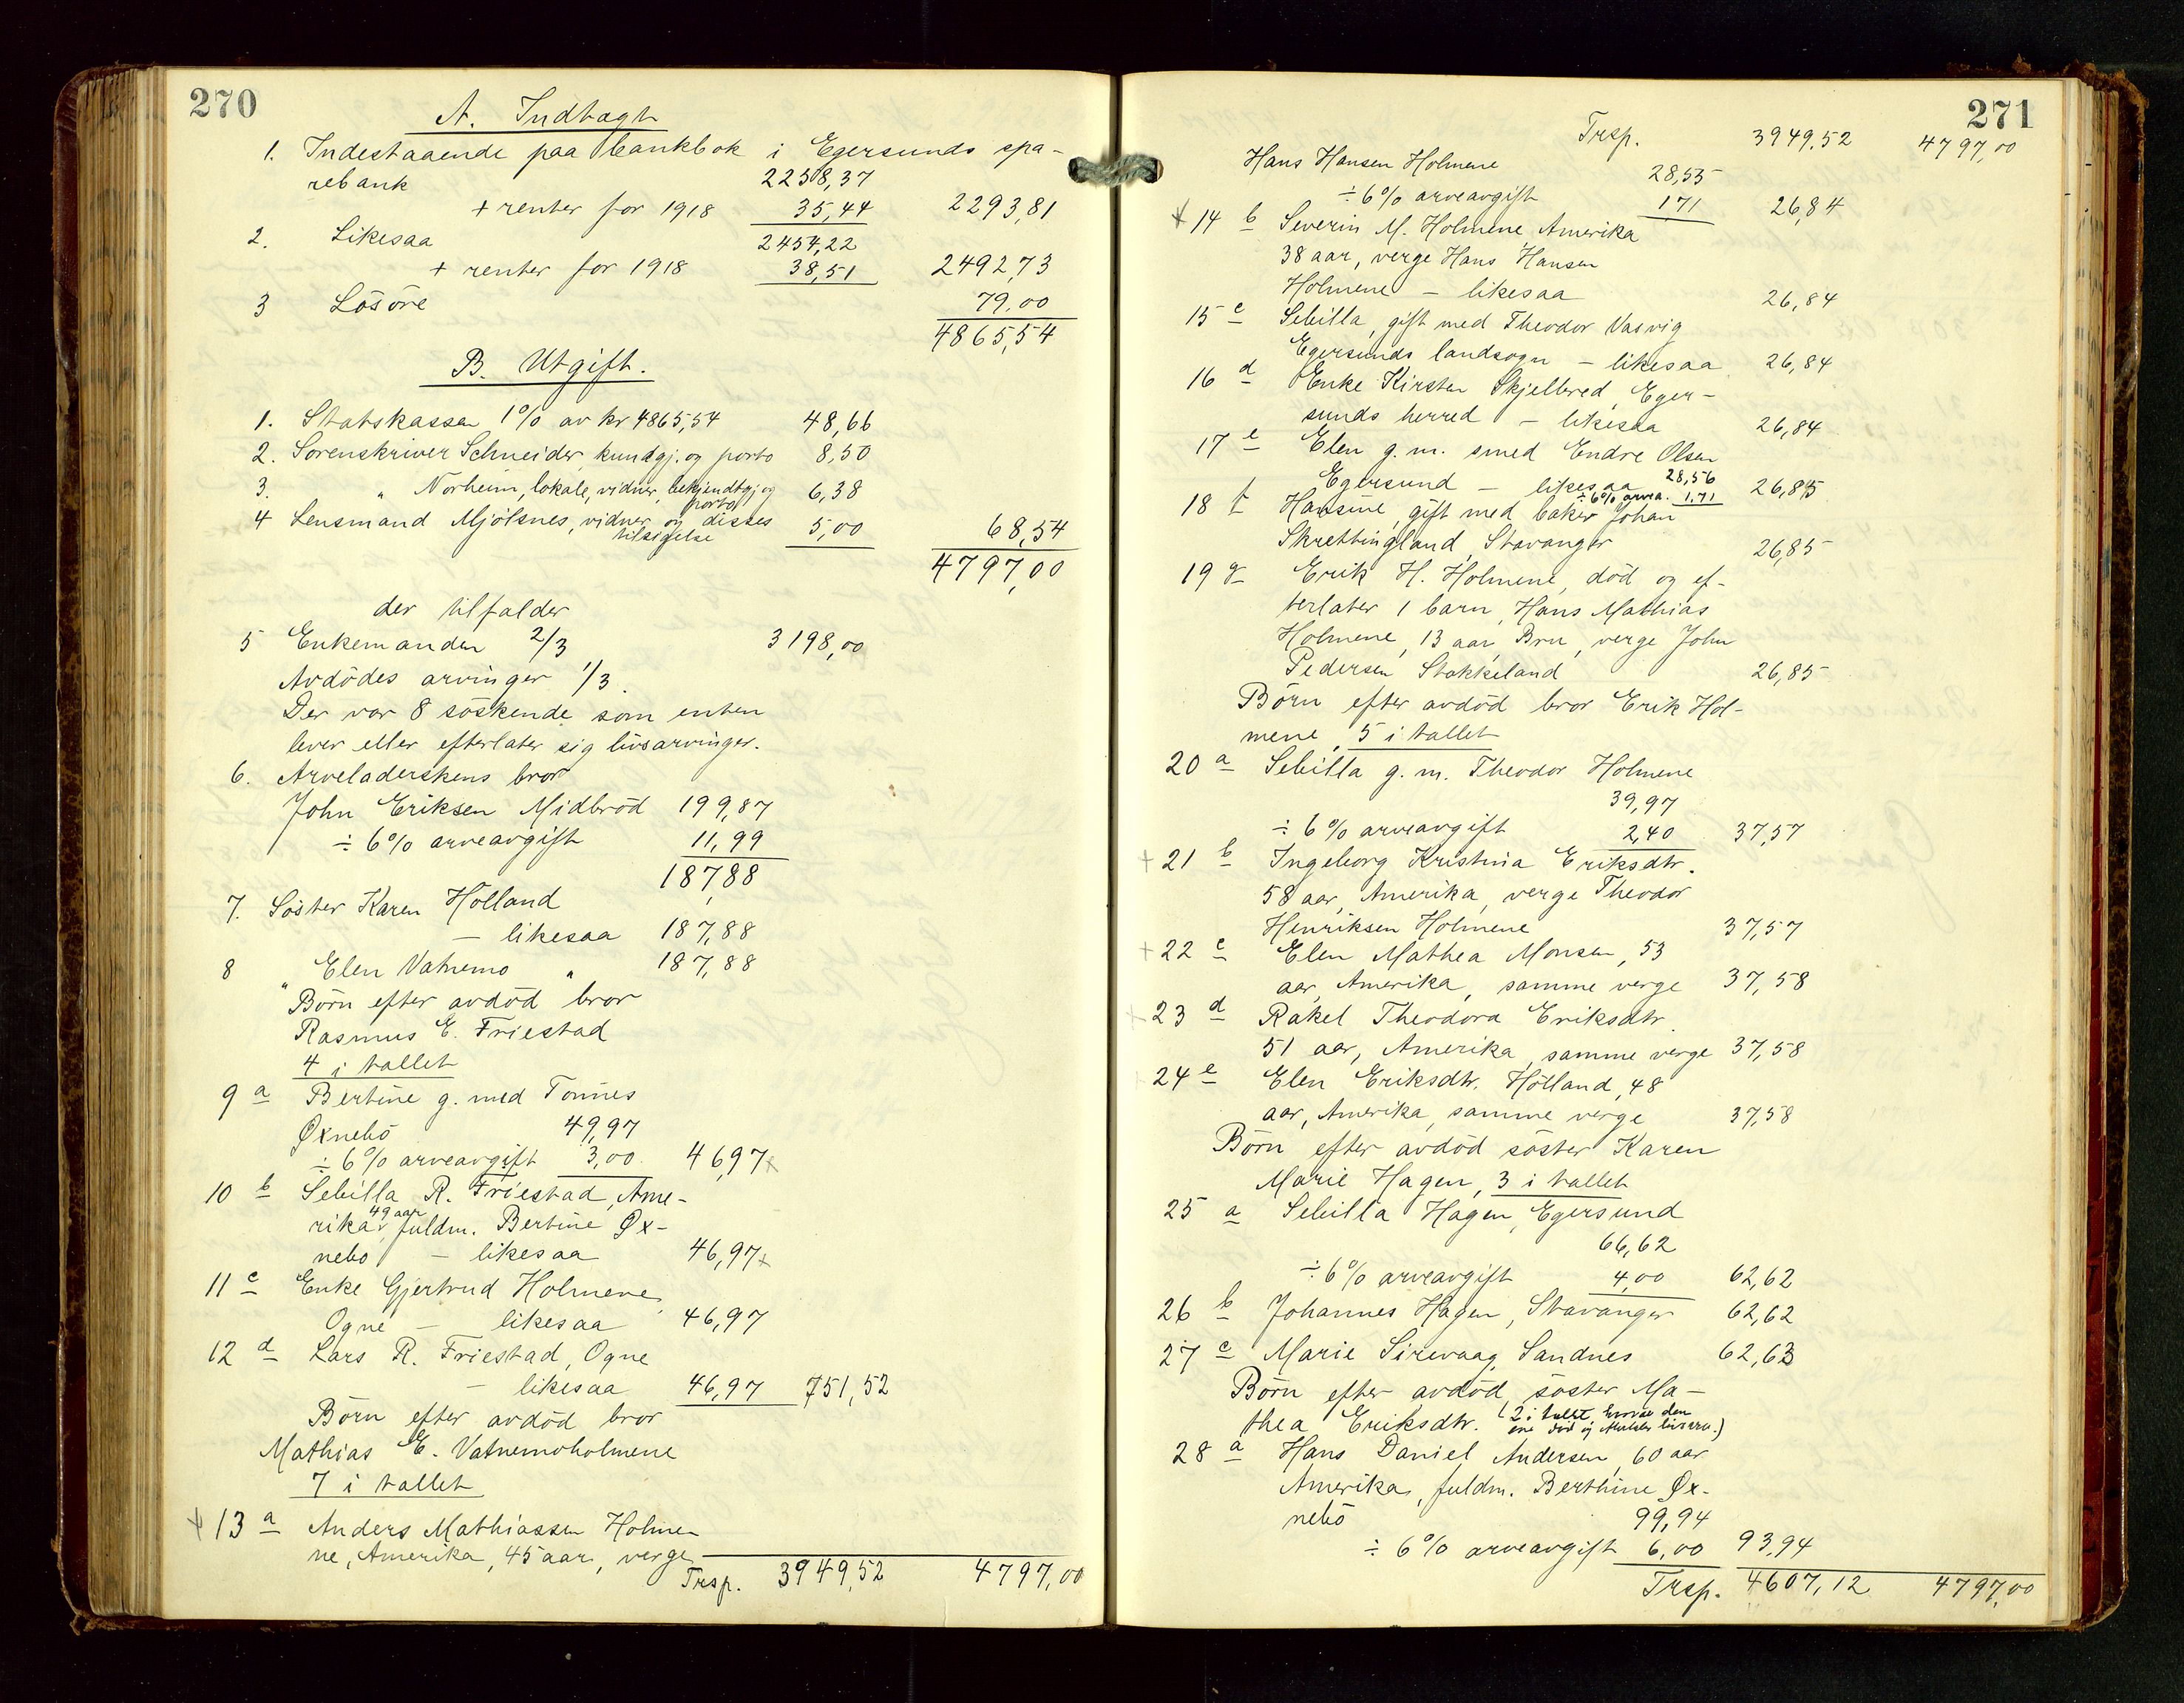 270
A. Indtægt
1. Indestaaende paa bankbok i Egersunds spa-
rebank 2258,37
+ renter for 1918 35,44 2293,81
2. Likesaa 2454,22
+ renter for 1918 38,51 2492,73
3 Løsøre 79,00
4865,54
B. Utgift.
1. Statskassen 1% av kr 4865,54 48,66
2. Sorenskriver Schneider, kundgj. og porto 8,50
3. " Norheim, lokale, vidner, bekjendtgj og porto 6,38
4 Lensmand Mjølsnes, vidner og disses tilsigelse 5,00 68,54
4797,00
der tilfalder
5 Enkemanden 2/3 3198,00
Avdødes arvinger 1/3.
Der var 8 søskende som enten
lever eller efterlater sig livsarvinger.
6. Arveladerskens bror
John Eriksen Midbrød 199,87
÷ 6% arveavgift 11,99
187,88
7. Søster Karen Hølland
— likesaa 187,88
8 " Elen Vatnemo " 187,88
Børn efter avdød bror
Rasmus E. Friestad
4 i tallet
9 a Bertine g. med Tønnes
Øxnebø 49,97
÷ 6% arveavgift 3,00 46,97
10 b Sebilla R. Friestad, Ame-
rika, 49 aar fuldm. Bertine Øx-
nebø — likesaa 46,97
11 c Enke Gjertrud Holmene,
Ogne — likesaa 46,97
12 d Lars R. Friestad, Ogne
— likesaa 46,97 751,52
Børn efter avdød bror
Mathias E. Vatnemoholmene
7 i tallet
+ 13 a Anders Mathiassen Holme-
ne, Amerika, 45 aar, verge
Trsp. 3949,52 4797,00
271
Trsp. 3949,52 4797,00
Hans Hansen Holmene 28,55
÷ 6% arveavgift 171 26,84
+ 14 b Severin M. Holmene Amerika
38 aar, verge Hans Hansen
Holmene — likesaa 26,84
15 c Sebilla, gift med Theodor Vasvig
Egersunds landsogn — likesaa 26,84
16 d Enke Kirsten Skjelbred, Eger-
sunds herred — likesaa 26,84
17 e Elen g. m. smed Endre Olsen
Egersund — likesaa 28,56 26,85
÷ 6% arvea. 1,71
18 f Hansine, gift med baker Johan
Skrettingland, Stavanger 26,85
19 g Erik H. Holmene, død og ef-
terlater 1 barn, Hans Mathias
Holmene, 13 aar, Bru, verge John
Pedersen Stokkeland 26,85
Børn efter avdød bror Erik Hol-
mene, 5 i tallet
20 a Sebilla g. m. Theodor Holmene
39,97
÷ 6% arveavgift 2,40 37,57
+ 21 b Ingeborg Kristina Eriksdtr.
58 aar, Amerika, verge Theodor
Henriksen Holmene 37,57
+ 22 c Elen Mathea Monsen, 53
aar, Amerika, samme verge 37,58
+ 23 d Rakel Theodora Eriksdtr.
51 aar, Amerika, samme verge 37,58
24 e Elen Eriksdtr. Hølland, 48
aar, Amerika, samme verge 37,58
Børn efter avdød søster Karen
Marie Hagen, 3 i tallet
25 a Sebilla Hagen, Egersund
66,62
÷ 6% arveavgift 4,00 62,62
26 b Johannes Hagen, Stavanger 62,62
27 c Marie Sirevaag, Sandnes 62,63
Børn efter avdød søster Ma-
thea Eriksdtr. (2 i tallet, hvorav den
ene død og livsarv.)
28 a Hans Daniel Andersen, 60 aar
Amerika, fuldm. Berthine Øx-
nebø 99,94
÷ 6% arveavgift 6,00 93,94
Trsp. 4607,12 4797,00